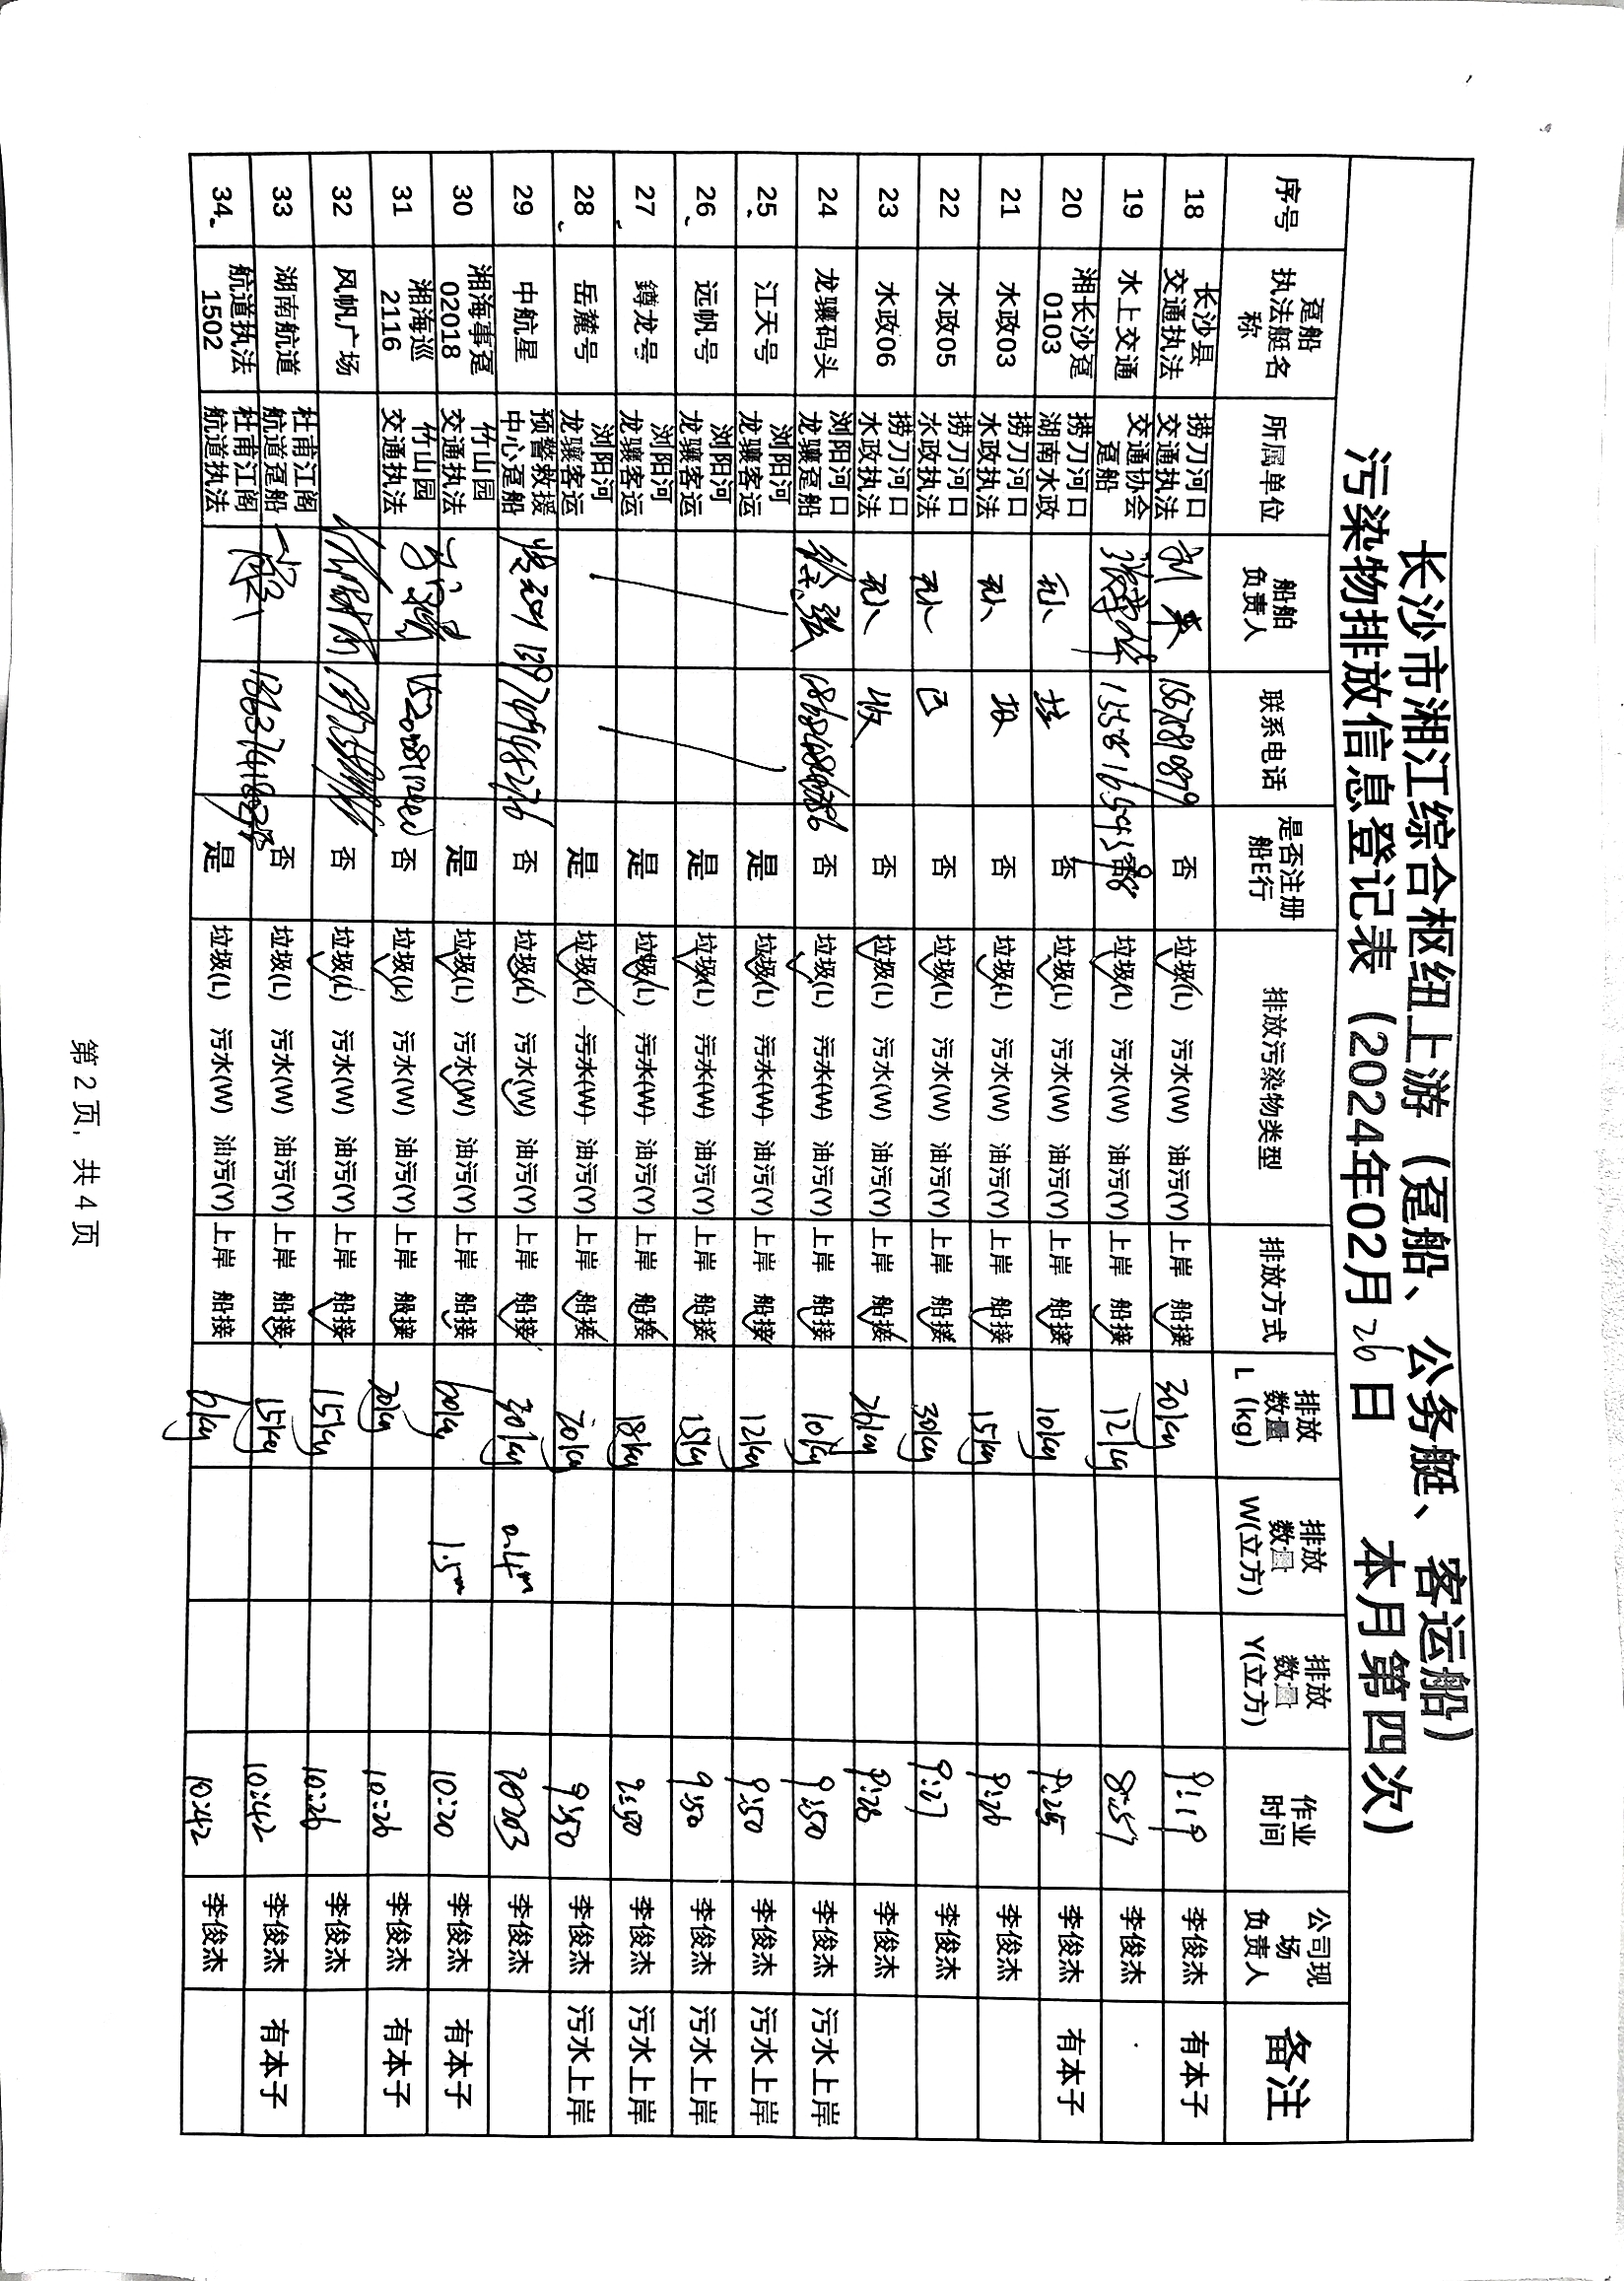 长沙市湘江综合枢纽上游（趸船、公务艇、客运船）
污染物排放信息登记表（2024年02月26日 本月第四次）
序号 趸船执法艇名称 所属单位 船舶负责人 联系电话 是否注册船E行 排放污染物类型 排放方式 排放数量L(kg) 排放数量W(立方) 排放数量Y(立方) 作业时间 公司现场负责人 备注
18 长沙县交通执法 捞刀河口交通执法 否 垃圾(L) 污水(W) 油污(Y) 上岸 船接 30kg 9:19 李俊杰 有本子
19 水上交通 交通协会趸船 否 垃圾(L) 污水(W) 油污(Y) 上岸 船接 12kg 8:57 李俊杰
20 湘长沙趸0103 捞刀河口湖南水政 否 垃圾(L) 污水(W) 油污(Y) 上岸 船接 10kg 9:25 李俊杰 有本子
21 水政03 捞刀河口水政执法 否 垃圾(L) 污水(W) 油污(Y) 上岸 船接 15kg 9:26 李俊杰
22 水政05 捞刀河口水政执法 否 垃圾(L) 污水(W) 油污(Y) 上岸 船接 30kg 9:27 李俊杰
23 水政06 捞刀河口水政执法 否 垃圾(L) 污水(W) 油污(Y) 上岸 船接 20kg 9:28 李俊杰
24 龙骧码头 浏阳河口龙骧趸船 否 垃圾(L) 污水(W) 油污(Y) 上岸 船接 10kg 9:50 李俊杰 污水上岸
25 江天号 浏阳河龙骧客运 是 垃圾(L) 污水(W) 油污(Y) 上岸 船接 12kg 9:50 李俊杰 污水上岸
26 远帆号 浏阳河龙骧客运 是 垃圾(L) 污水(W) 油污(Y) 上岸 船接 15kg 9:50 李俊杰 污水上岸
27 鐏龙号 浏阳河龙骧客运 是 垃圾(L) 污水(W) 油污(Y) 上岸 船接 18kg 9:50 李俊杰 污水上岸
28 岳麓号 浏阳河龙骧客运 是 垃圾(L) 污水(W) 油污(Y) 上岸 船接 20kg 9:50 李俊杰 污水上岸
29 中航星 预警救援中心趸船 否 垃圾(L) 污水(W) 油污(Y) 上岸 船接 30kg 0.4m 李俊杰
30 湘海事趸02018 竹山园交通执法 是 垃圾(L) 污水(W) 油污(Y) 上岸 船接 60kg 1.5m 10:20 李俊杰 有本子
31 湘海巡2116 竹山园交通执法 否 垃圾(L) 污水(W) 油污(Y) 上岸 船接 20kg 10:26 李俊杰 有本子
32 风帆广场 否 垃圾(L) 污水(W) 油污(Y) 上岸 船接 15kg 10:26 李俊杰
33 湖南航道 杜甫江阁航道趸船 否 垃圾(L) 污水(W) 油污(Y) 上岸 船接 15kg 10:42 李俊杰 有本子
34 航道执法1502 杜甫江阁航道执法 是 垃圾(L) 污水(W) 油污(Y) 上岸 船接 6kg 10:42 李俊杰
第2页, 共4页